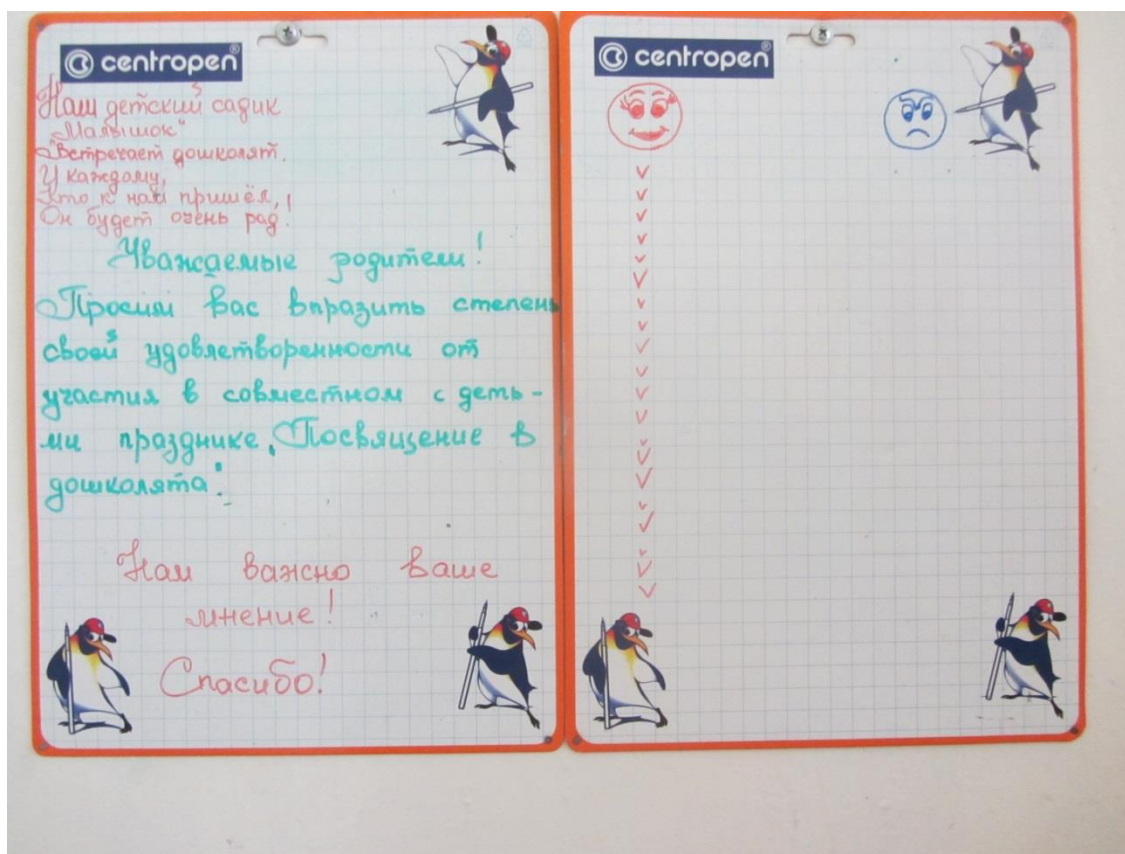 centropen®
Наш детский садик
„Малышок"
Встречает дошколят.
И каждому,
Кто к нам пришёл,
Он будет очень рад!
Уважаемые родители!
Просим вас впразить степень
своей удовлетворенности от
участия в совместном с деть-
ми празднике „Посвящение в
дошколята".
Нам важно ваше
мнение!
Спасибо!
centropen®